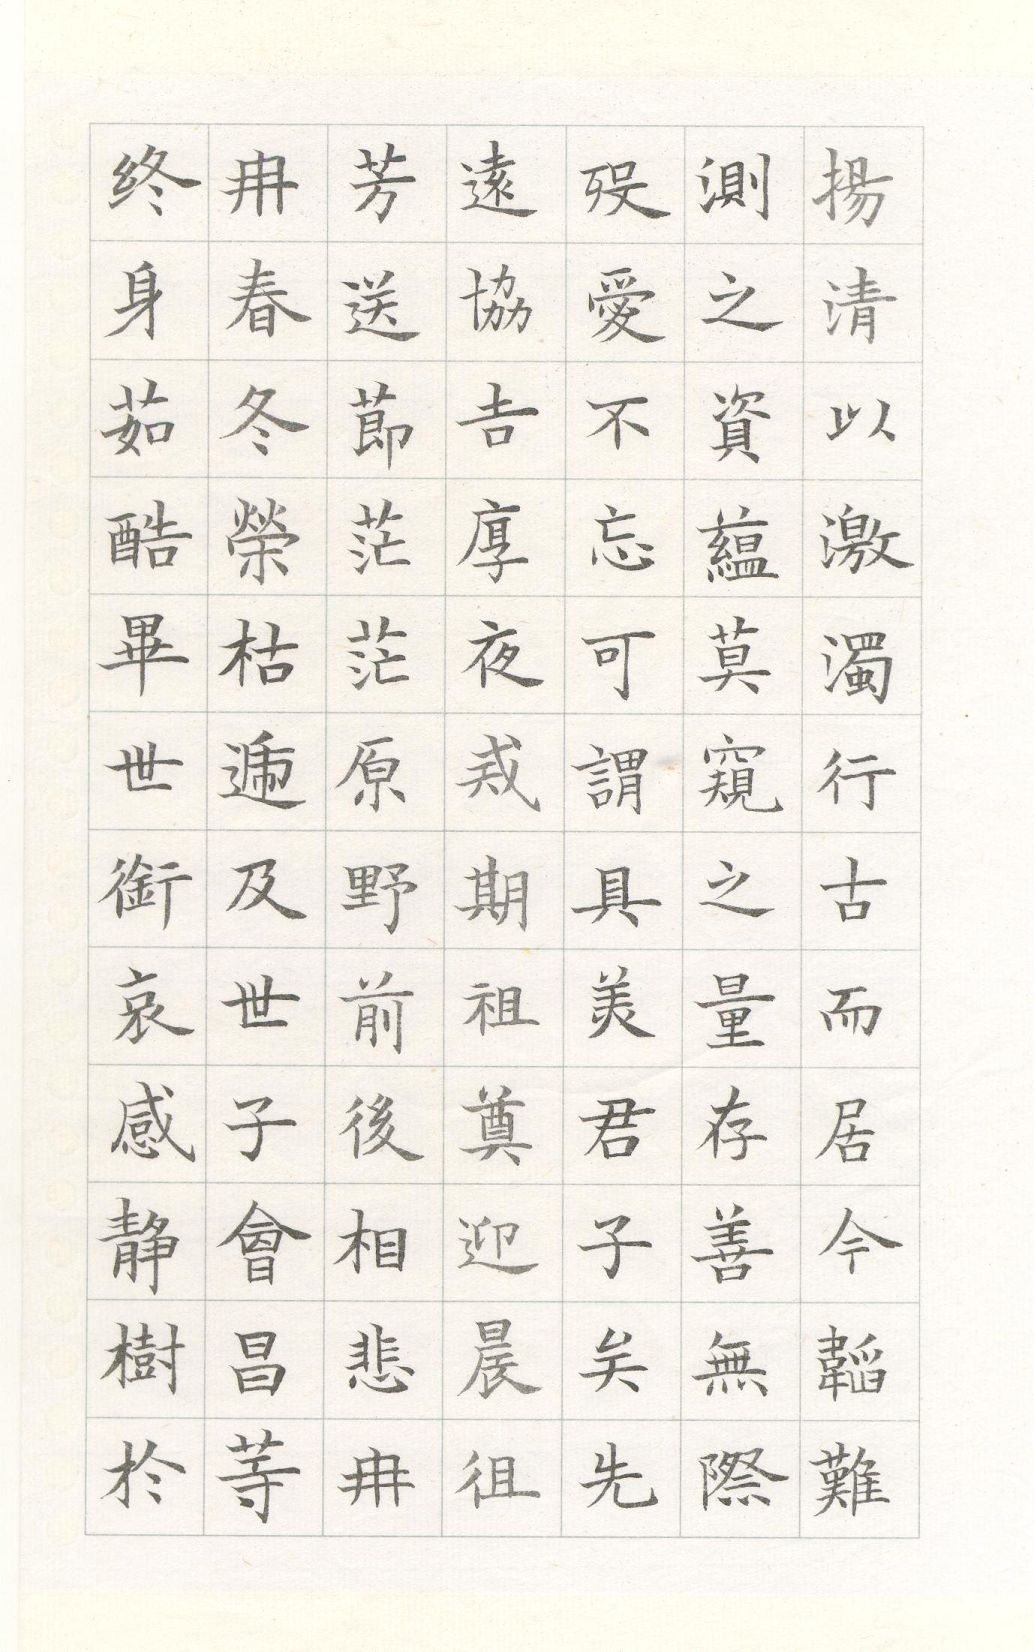 揚清以激濁行古而居今韜難
測之資蘊莫窺之量存善無際
歿愛不忘可謂具美君子矣先
遠協吉厚夜戒期祖奠迎晨徂
芳送節茫茫原野前後相悲冉
冉春冬榮枯遞及世子會昌等
终身茹酷畢世銜哀感靜樹於